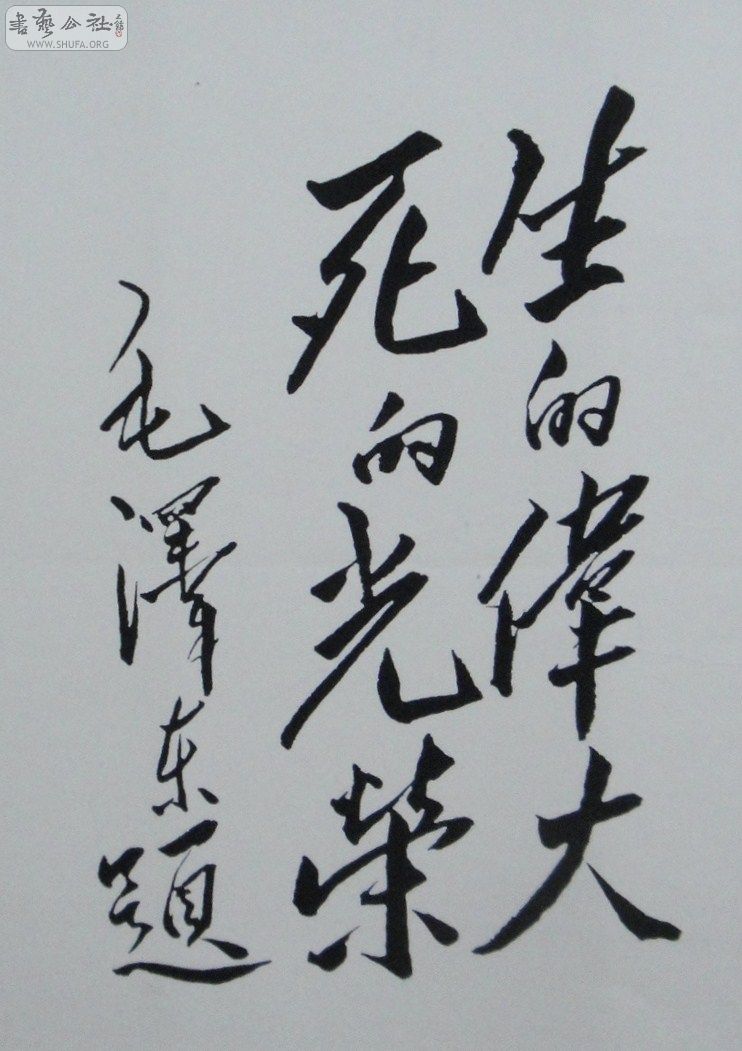 書藝公社
WWW.SHUFA.ORG
生的偉大
死的光榮
毛澤东題